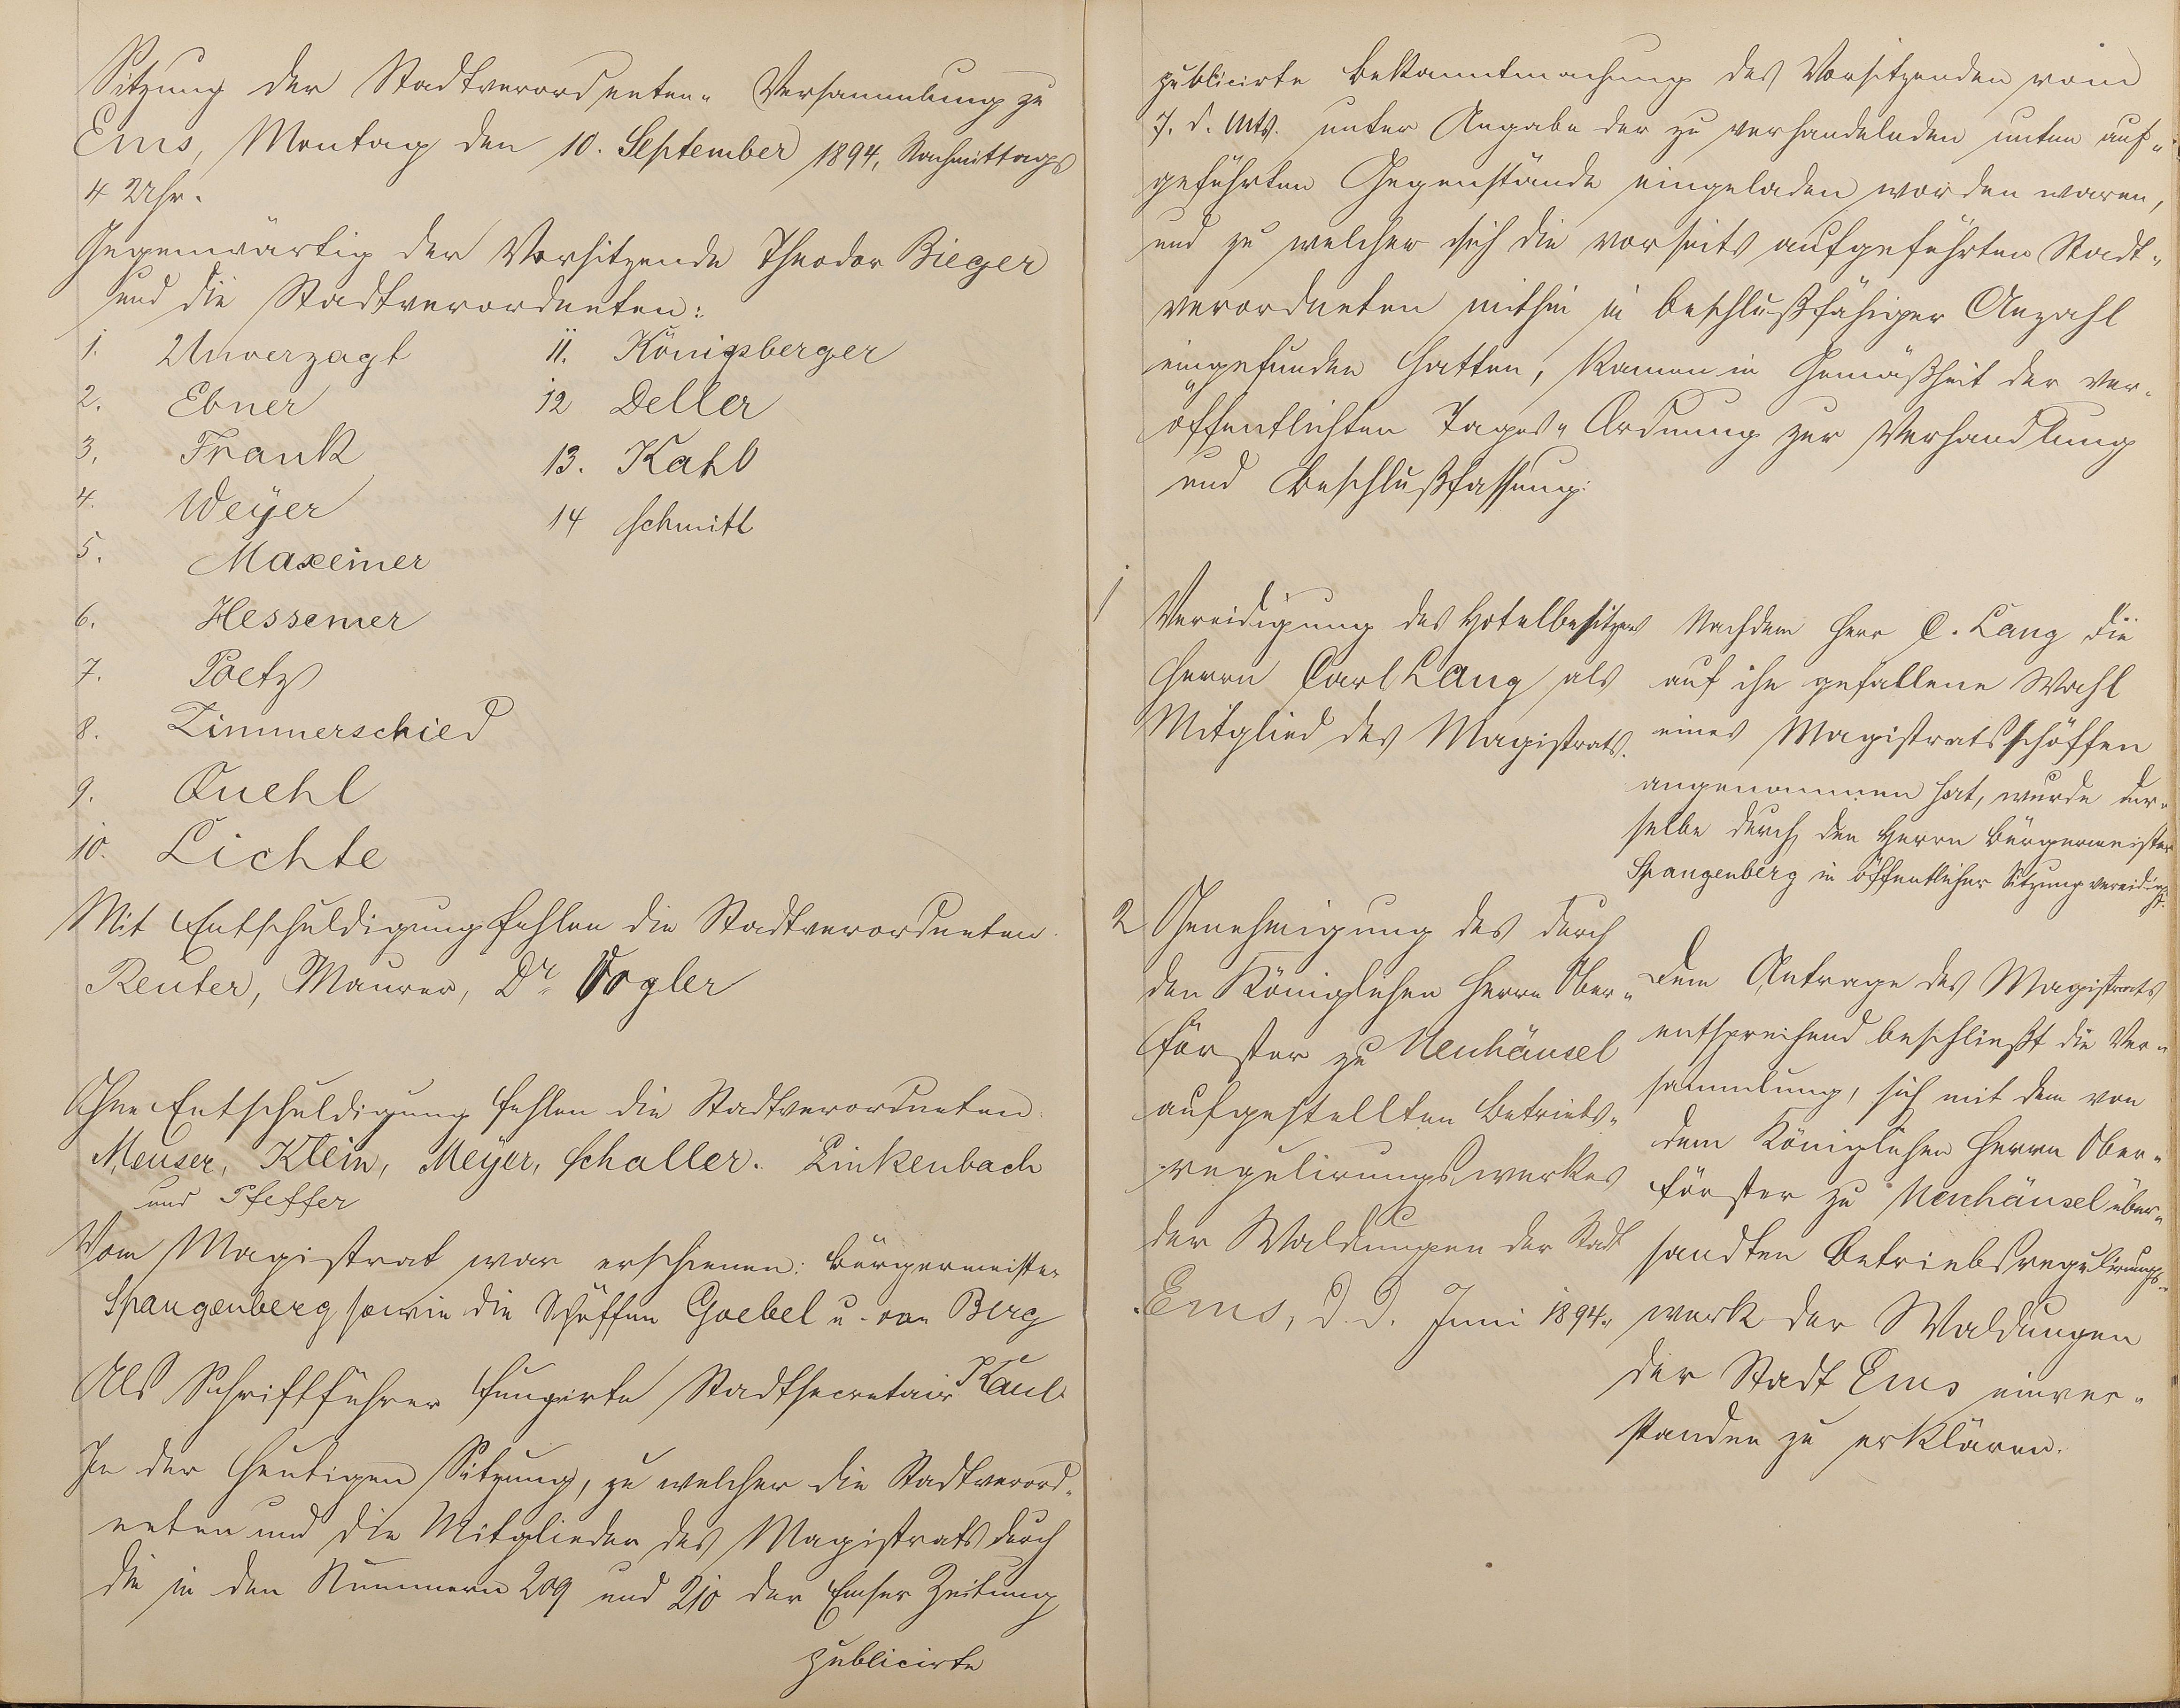 Sitzung der Stadtverordneten-Versammlung zu
Ems, Montag den 10. September 1894, Nachmittags
4 Uhr.
Gegenwärtig der Vorsitzende Theodor Bieger
und die Stadtverordneten:
1. Unverzagt
2. Ebner
3. Frank
4. Weyer
5. Maxeiner
6. Hessemer
7. Poetz
8. Zimmerschied
9. Quehl
10. Lichte
11. Königsberger
12 Deller
13. Kahl
14 Schmitt
Mit Entschuldigung fehlen die Stadtverordneten
Reuter, Maurer, Dr. Vogler
Ohne Entschuldigung fehlen die Stadtverordneten:
Meuser, Klein, Meyer, Schaller. Linkenbach
und Pfeffer
Vom Magistrat war erschienen: Bürgermeister
Spangenberg sowie die Schöffen Goebel u. von Berg
Als Schriftführer fungirte Stadtsecretair Kaul
In der heutigen Sitzung, zu welcher die Stadtverord-
neten und die Mitglieder des Magistrats durch
die in den Nummern 209 und 210 der Emser Zeitung
publicirte
publicirte Bekanntmachung des Vorsitzenden vom
7. d. Mts. unter Angabe der zu verhandelnden unten auf-
geführten Gegenstände eingeladen worden waren,
und zu welcher sich die vorseits aufgeführten Stadt-
verordneten mithin in beschlußfähiger Anzahl
eingefunden hatten, kamen in Gemäßheit der ver-
öffentlichten Tages-Ordnung zur Verhandlung
und Beschlußfassung:
1 Vereidigung des Hotelbesitzers
Herrn Carl Lang als
Mitglied des Magistrats.
Nachdem Herr C. Lang die
auf ihn gefallene Wahl
eines Magistratsschöffen
angenommen hat, wurde der-
selbe durch den Herrn Bürgermeister
Spangenberg in öffentlicher Sitzung vereidigt.
2 Genehmigung des durch
den Königlichen Herrn Ober-
förster zu Neuhäusel
aufgestellten Betriebs-
regulirungswerkes
der Waldungen der Stadt
Ems, d. d. Juni 1894.
Dem Antrage des Magistrats
entsprechend beschließt die Ver-
sammlung, sich mit dem von
dem Königlichen Herrn Ober-
förster zu Neuhäusel über-
sandten Betriebsregulirungs-
werk der Waldungen
der Stadt Ems einver-
standen zu erklären.